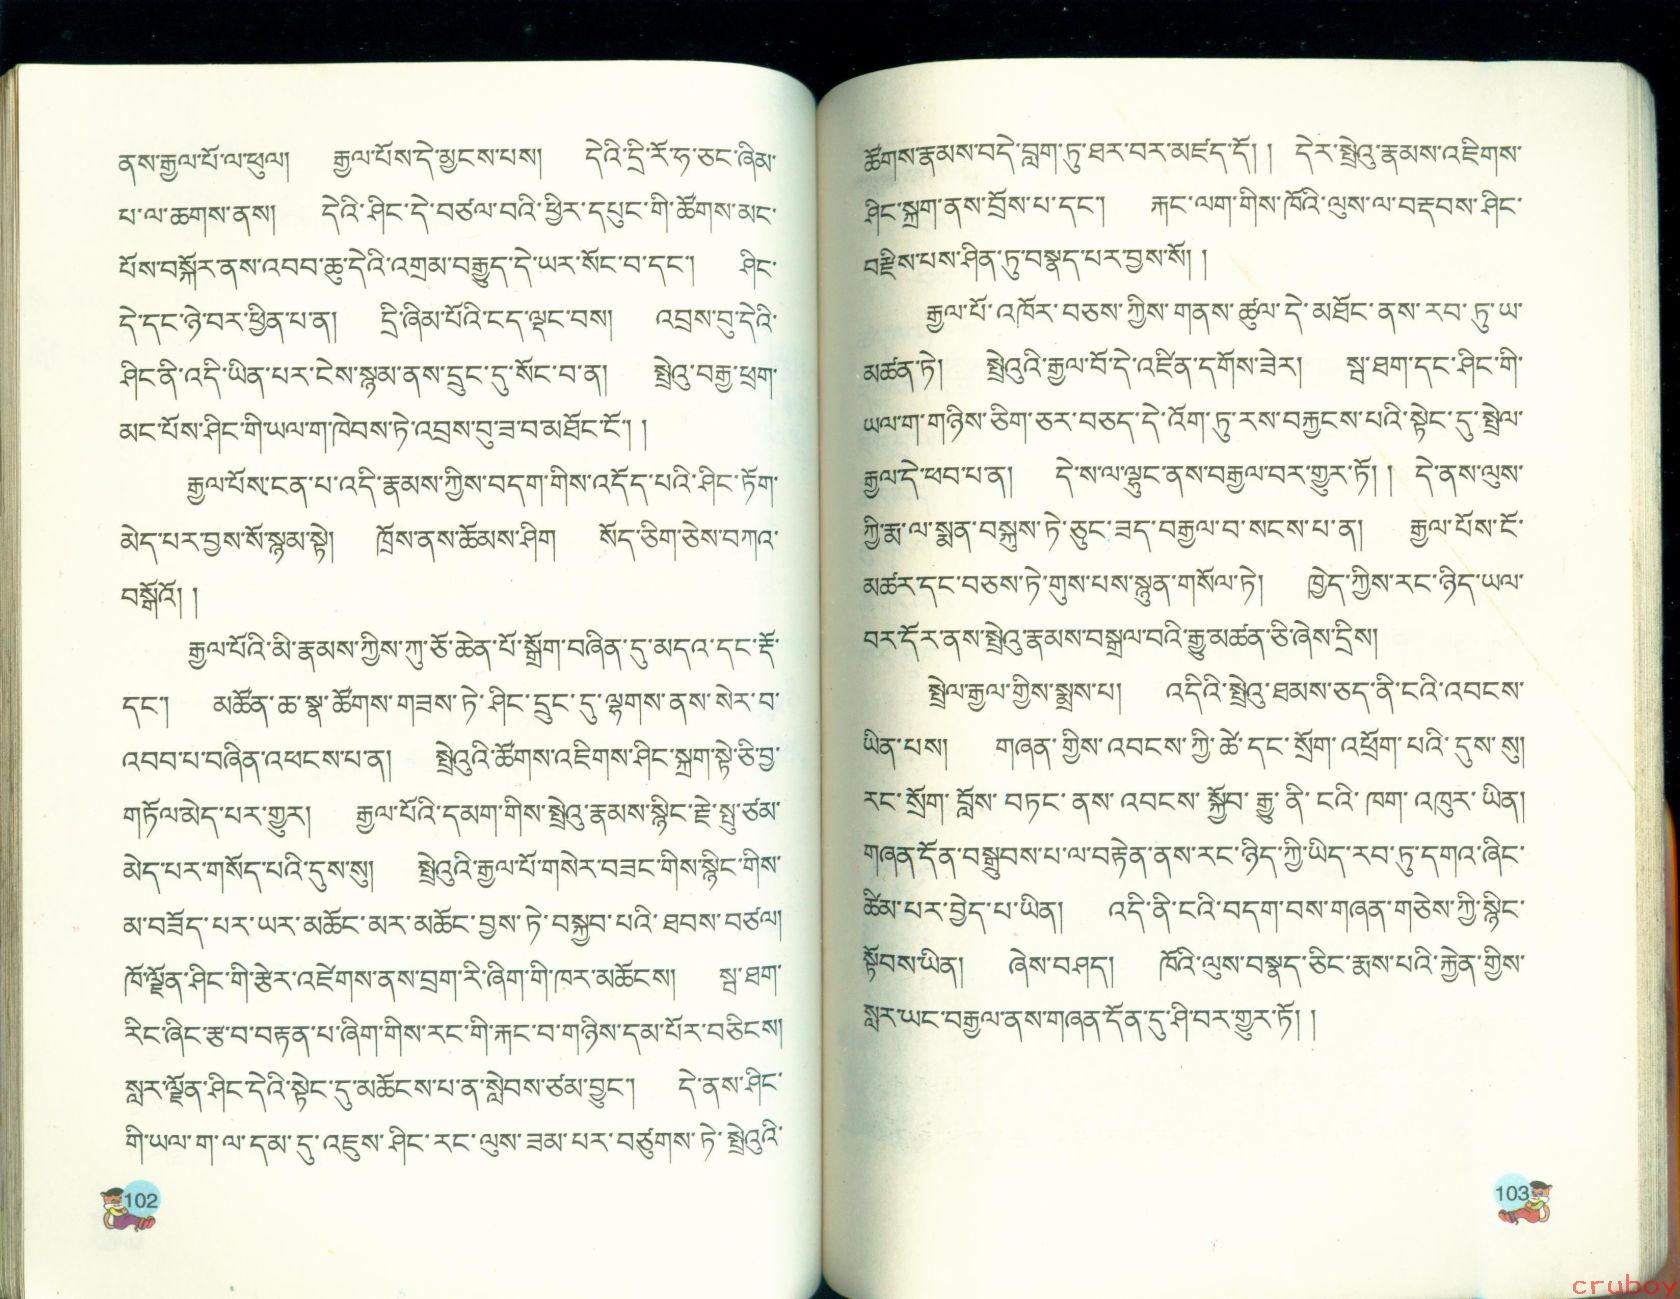 ནས་རྒྱལ་པོ་ལ་ཕུལ། རྒྱལ་པོས་དེ་མྱངས་པས། དེའི་དྲི་རོ་ཧ་ཅང་ཞིམ་
པ་ལ་ཆགས་ནས། དེའི་ཤིང་དེ་བཙལ་བའི་ཕྱིར་དཔུང་གི་ཚོགས་མང་
པོས་བསྐོར་ནས་འབབ་ཆུ་དེའི་འགྲམ་བརྒྱུད་དེ་ཡར་སོང་བ་དང་། ཤིང་
དེ་དང་ཉེ་བར་ཕྱིན་པ་ན། དྲི་ཞིམ་པོའི་ངད་ལྡང་བས། འབྲས་བུ་དེའི་
ཤིང་ནི་འདི་ཡིན་པར་ངེས་སྙམ་ནས་དྲུང་དུ་སོང་བ་ན། སྤྲེའུ་བརྒྱ་ཕྲག་
མང་པོས་ཤིང་གི་ཡལ་ག་ཁེབས་ཏེ་འབྲས་བུ་ཟ་བ་མཐོང་ངོ་། །
རྒྱལ་པོས་ངན་པ་འདི་རྣམས་ཀྱིས་བདག་གིས་འདོད་པའི་ཤིང་ཏོག་
མེད་པར་བྱས་སོ་སྙམ་སྟེ། ཁྲོས་ནས་ཚོམས་ཤིག སོད་ཅིག་ཅེས་བཀའ་
བསྒོའོ། །
རྒྱལ་པོའི་མི་རྣམས་ཀྱིས་ཀུ་ཅོ་ཆེན་པོ་སྒྲོག་བཞིན་དུ་མདའ་དང་རྡོ་
དང་། མཚོན་ཆ་སྣ་ཚོགས་གཟས་ཏེ་ཤིང་དྲུང་དུ་ལྷགས་ནས་སེར་བ་
འབབ་པ་བཞིན་འཕངས་པ་ན། སྤྲེའུའི་ཚོགས་འཇིགས་ཤིང་སྐྲག་སྟེ་ཅི་བྱ་
གཏོལ་མེད་པར་གྱུར། རྒྱལ་པོའི་དམག་གིས་སྤྲེའུ་རྣམས་སྙིང་རྗེ་སྤུ་ཙམ་
མེད་པར་གསོད་པའི་དུས་སུ། སྤྲེའུའི་རྒྱལ་པོ་གསེར་བཟང་གིས་སྙིང་གིས་
མ་བཟོད་པར་ཡར་མཆོང་མར་མཆོང་བྱས་ཏེ་བསྐྱབ་པའི་ཐབས་བཙལ།
ཁོ་ལྗོན་ཤིང་གི་རྩེར་འཛེགས་ནས་བྲག་རི་ཞིག་གི་ཁར་མཆོངས། སྦ་ཐག་
རིང་ཞིང་རྩ་བ་བརྟན་པ་ཞིག་གིས་རང་གི་རྐང་བ་གཉིས་དམ་པོར་བཅིངས།
སླར་ལྗོན་ཤིང་དེའི་སྟེང་དུ་མཆོངས་པ་ན་སླེབས་ཙམ་བྱུང་། དེ་ནས་ཤིང་
གི་ཡལ་ག་ལ་དམ་དུ་འཇུས་ཤིང་རང་ལུས་ཟམ་པར་བཙུགས་ཏེ་སྤྲེའུའི་
102
ཚོགས་རྣམས་བདེ་བླག་ཏུ་ཐར་བར་མཛད་དོ། །དེར་སྤྲེའུ་རྣམས་འཇིགས་
ཤིང་སྐྲག་ནས་བྲོས་པ་དང་། རྐང་ལག་གིས་ཁོའི་ལུས་ལ་བརྡབས་ཤིང་
བརྫིས་པས་ཤིན་ཏུ་བསྣད་པར་བྱས་སོ། །
རྒྱལ་པོ་འཁོར་བཅས་ཀྱིས་གནས་ཚུལ་དེ་མཐོང་ནས་རབ་ཏུ་ཡ་
མཚན་ཏེ། སྤྲེའུའི་རྒྱལ་པོ་དེ་འཛིན་དགོས་ཟེར། སྦ་ཐག་དང་ཤིང་གི་
ཡལ་ག་གཉིས་ཅིག་ཅར་བཅད་དེ་འོག་ཏུ་རས་བརྐྱངས་པའི་སྟེང་དུ་སྤྲེལ་
རྒྱལ་དེ་ཕབ་པ་ན། དེ་ས་ལ་ལྷུང་ནས་བརྒྱལ་བར་གྱུར་ཏོ། །དེ་ནས་ལུས་
ཀྱི་རྨ་ལ་སྨན་བསྐུས་ཏེ་ཅུང་ཟད་བརྒྱལ་བ་སངས་པ་ན། རྒྱལ་པོས་ངོ་
མཚར་དང་བཅས་ཏེ་གུས་པས་སྙུན་གསོལ་ཏེ། ཁྱེད་ཀྱིས་རང་ཉིད་ཡལ་
བར་དོར་ནས་སྤྲེའུ་རྣམས་བསྒྲལ་བའི་རྒྱུ་མཚན་ཅི་ཞེས་དྲིས།
སྤྲེལ་རྒྱལ་གྱིས་སྨྲས་པ། འདིའི་སྤྲེའུ་ཐམས་ཅད་ནི་ངའི་འབངས་
ཡིན་པས། གཞན་གྱིས་འབངས་ཀྱི་ཚེ་དང་སྲོག་འཕྲོག་པའི་དུས་སུ།
རང་སྲོག་བློས་བཏང་ནས་འབངས་སྐྱོབ་རྒྱུ་ནི་ངའི་ཁག་འཁུར་ཡིན།
གཞན་དོན་བསྒྲུབས་པ་ལ་བརྟེན་ནས་རང་ཉིད་ཀྱི་ཡིད་རབ་ཏུ་དགའ་ཞིང་
ཚིམ་པར་བྱེད་པ་ཡིན། འདི་ནི་ངའི་བདག་བས་གཞན་གཅེས་ཀྱི་སྙིང་
སྟོབས་ཡིན། ཞེས་བཤད། ཁོའི་ལུས་བསྣད་ཅིང་རྨས་པའི་རྐྱེན་གྱིས་
སླར་ཡང་བརྒྱལ་ནས་གཞན་དོན་དུ་ཤི་བར་གྱུར་ཏོ། །
103
cruboy